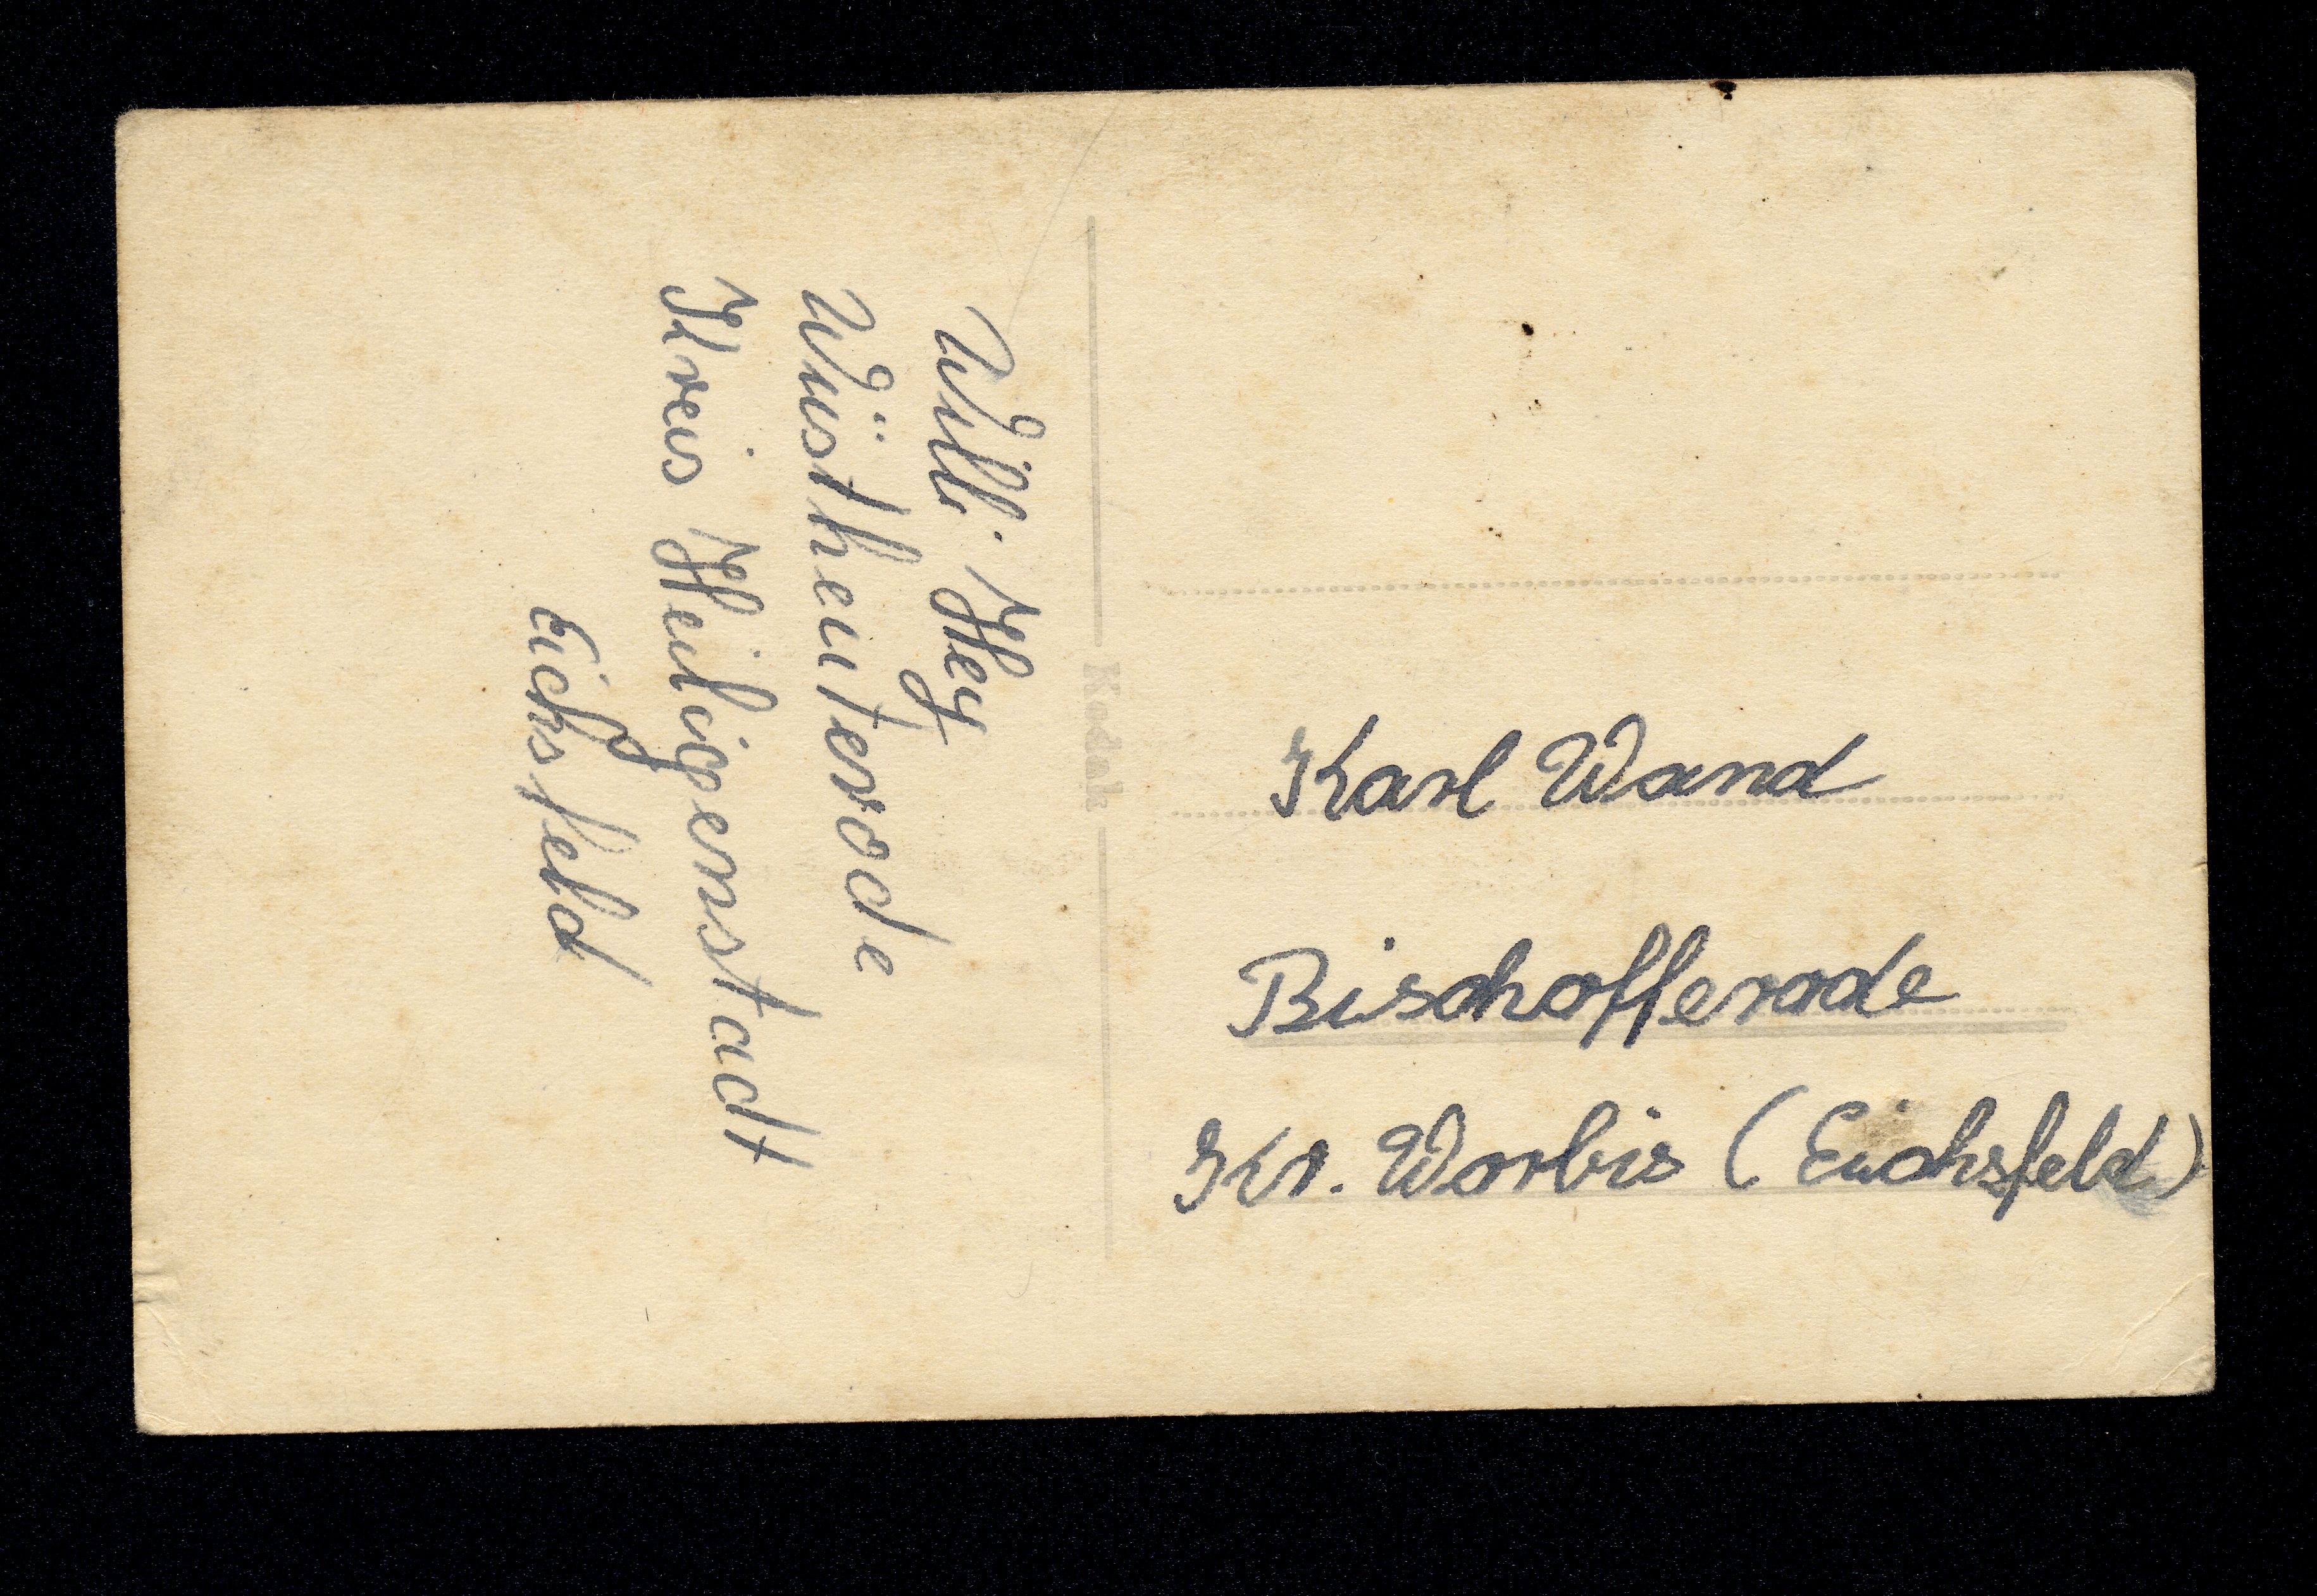 Willi Hey
Wüstheuterode
Kreis Heiligenstadt
Eichsfeld
Kodak
Karl Wand
Bischofferode
Kr. Worbis (Eichsfeld)